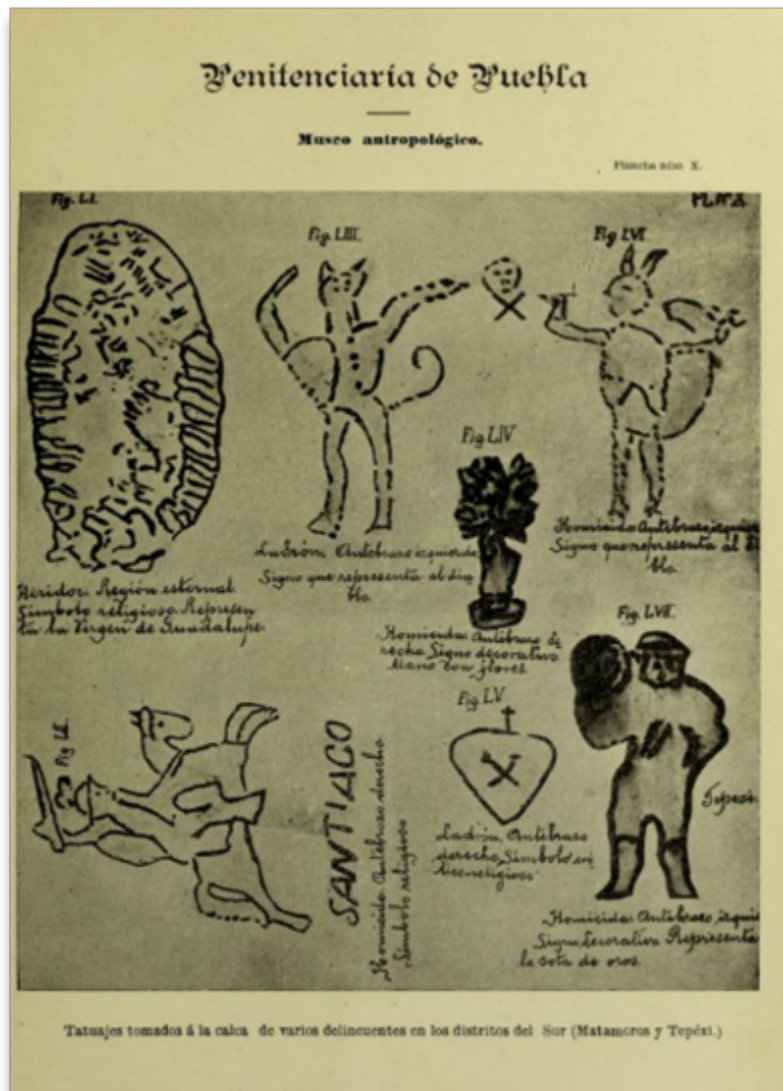 Penitenciaría de Puebla
Museo antropológico.
Plancha núm X.
Fig. LI.
Heridor. Región esternal
Símbolo religioso. Represen
ta la Virgen de Guadalupe.
Fig. LIII.
Ladrón. Antebrazo izquierdo
Signo que representa al dia
blo.
Fig. LVI.
Homicida Antebrazo
Signo que representa al di
blo.
Fig. LIV.
Homicida Antebrazo de
recho Signo decorativo
Mano con flores
Fig. LII.
SANTIAGO
Homicida Antebrazo derecho
Símbolo religioso
Fig. LV.
Ladrón. Antebrazo
derecho Símbolo
religioso
Fig. LVII.
Homicida Antebrazo
Signo decorativo Representa
la sota de oros.
Tatuajes tomados á la calca de varios delincuentes en los distritos del Sur (Matamoros y Tepéxi.)